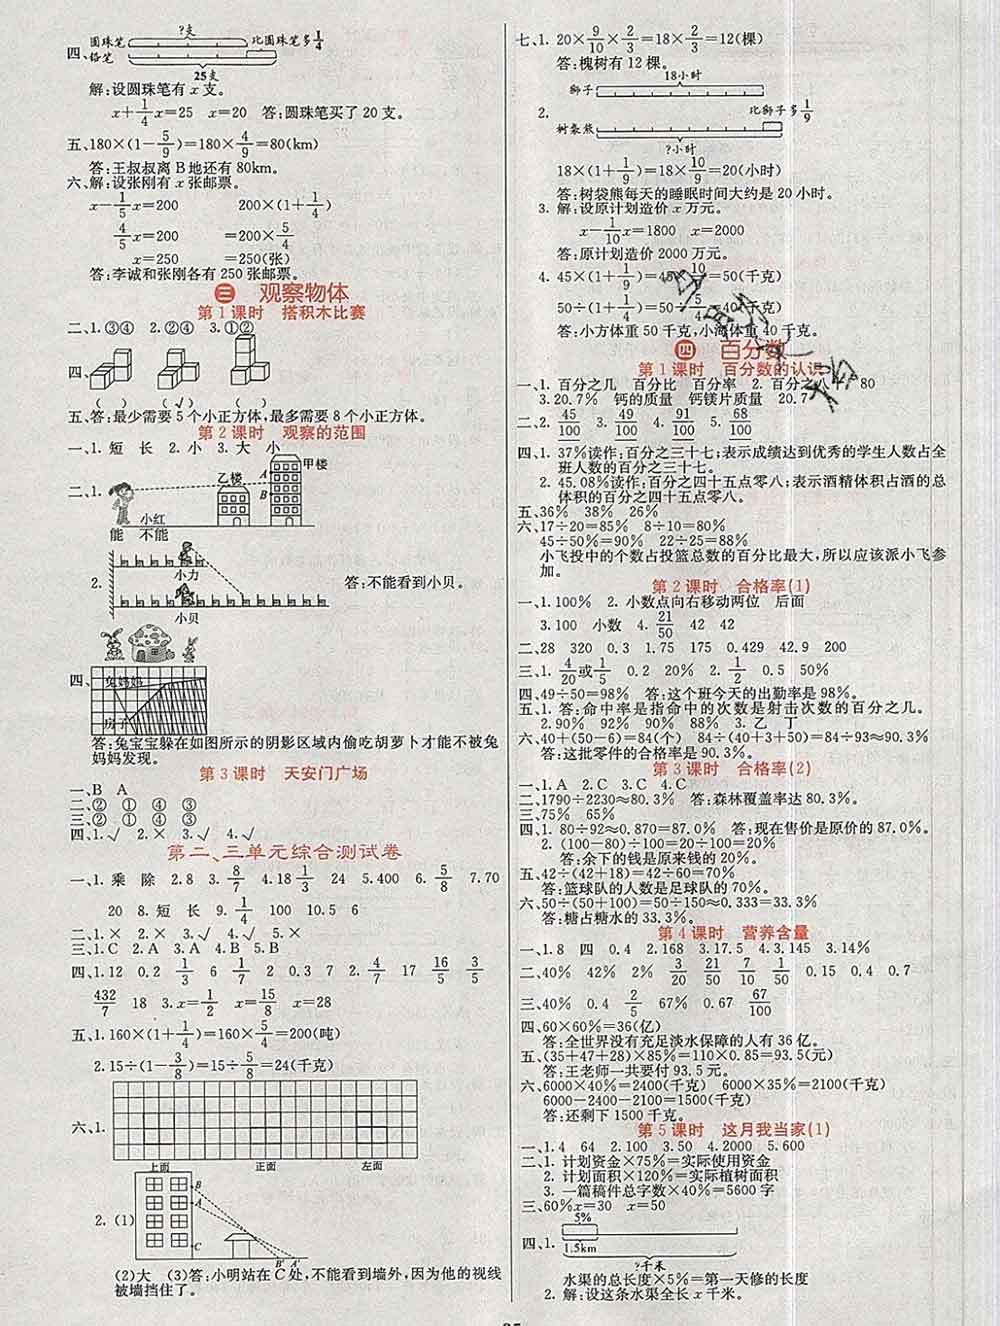 ?支
四、圆珠笔 比圆珠笔多1/4
铅笔
25支
解:设圆珠笔有x支。
x+1/4x=25 x=20 答:圆珠笔买了20支。
五、180×(1-5/9)=180×4/9=80(km)
答:王叔叔离B地还有80km。
六、解:设张刚有x张邮票。
x-1/5x=200 200×(1+1/4)
4/5x=200 =200×5/4
x=250 =250(张)
答:李诚和张刚各有250张邮票。
三 观察物体
第1课时 搭积木比赛
二、1.③④ 2.②④ 3.①②
四、
( ) (√) ( )
五、答:最少需要5个小正方体,最多需要8个小正方体。
第2课时 观察的范围
一、1.短 长 2.小 3.大 小
二、1.
甲楼
乙楼 A
B
小红
能 不能
2.
小力 答:不能看到小贝。
小贝
四、兔妈妈
房子
答:兔宝宝躲在如图所示的阴影区域内偷吃胡萝卜才能不被兔
妈妈发现。
第3课时 天安门广场
一、B A
二、② ① ④ ③
三、② ① ④ ③
四、1.√ 2.× 3.√ 4.√
第二、三单元综合测试卷
一、1.乘 除 2.8 3.8/7 4.18 1/3 24 5.400 6.5/8 7.70
20 8.短 长 9.1/4 100 10.5 6
二、1.× 2.× 3.√ 4.√ 5.×
三、1.C 2.A 3.A 4.B 5.B
四、1.12 0.2 1/3 6 1/7 2 0.3 7 2.4/7 17 16/5 3/5
432/7 18 3.x=1/2 x=15/8 x=28
五、1.160×(1+1/4)=160×5/4=200(吨)
2.15÷(1-3/8)=15÷5/8=24(千克)
六、1.
上面 正面 左面
2.(1)
B
A
C
B′ A′
(2)大 (3)答:小明站在C处,不能看到墙外,因为他的视线
被墙挡住了。
七、1.20×9/10×2/3=18×2/3=12(棵)
答:槐树有12棵。
18小时
狮子
2. 比狮子多1/9
树袋熊
?小时
18×(1+1/9)=18×10/9=20(小时)
答:树袋熊每天的睡眠时间大约是20小时。
3.解:设原计划造价x万元。
x-1/10x=1800 x=2000
答:原计划造价2000万元。
4.45×(1+1/9)=45×10/9=50(千克)
50÷(1+1/4)=50÷5/4=40(千克)
答:小方体重50千克,小海体重40千克。
四 百分数
第1课时 百分数的认识
一、1.百分之几 百分比 百分率 2.百分之八 80
3.20.7% 钙的质量 钙镁片质量 20.7
二、2.45/100 3.49/100 4.91/100 5.68/100
四、1.37%读作:百分之三十七;表示成绩达到优秀的学生人数占全
班人数的百分之三十七。
2.45.08%读作:百分之四十五点零八;表示酒精体积占酒的总
体积的百分之四十五点零八。
五、36% 38% 26%
六、17÷20=85% 8÷10=80%
45÷50=90% 22÷25=88%
小飞投中的个数占投篮总数的百分比最大,所以应该派小飞参
加。
第2课时 合格率(1)
一、1.100% 2.小数点向右移动两位 后面
3.100 小数 4.21/50 42 42
二、28 320 0.3 1.75 175 0.429 42.9 200
三、1.4/20或1/5 0.2 20% 2.1/2 0.5 50%
四、49÷50=98% 答:这个班今天的出勤率是98%。
五、1.答:命中率是指命中的次数是射击次数的百分之几。
2.90% 92% 90% 88% 3.乙 丁
六、40+(50-6)=84(个) 84÷(40+3+50)=90.3%
答:这批零件的合格率是90.3%。
第3课时 合格率(2)
一、1.A 2.C 3.C 4.C
二、1790÷2230≈80.3% 答:森林覆盖率达80.3%。
三、75% 65%
四、1.80÷92≈0.870=87.0% 答:现在售价是原价的87.0%。
2.(100-80)÷100=20÷100=20%
答:余下的钱是原来钱的20%。
五、42÷(42+18)=42÷60=70%
答:篮球队的人数是足球队的70%。
六、50÷(50+100)=50÷150≈0.333=33.3%
答:糖占糖水的33.3%。
第4课时 营养含量
一、1.8 四 0.4 2.168 3.17.5 4.3.145 3.14%
二、40% 42% 2% 3/20 21/50 7/10 1/50 0.15 0.4 0.7
三、40% 0.4 2/5 67% 0.67 67/100
四、60×60%=36(亿)
答:全世界没有充足淡水保障的人有36亿。
五、(35+47+28)×85%=110×0.85=93.5(元)
答:王老师一共要付93.5元。
六、6000×40%=2400(千克) 6000×35%=2100(千克)
6000-2400-2100=1500(千克)
答:还剩下1500千克。
第5课时 这月我当家(1)
一、1.4 64 2.100 3.50 4.2000 5.600
二、1.计划资金×75%=实际使用资金
2.计划面积×120%=实际植树面积
3.一篇稿件总字数×40%=5600字
三、60%x=30 x=50
5%
四、1.
1.5km
?千米
水渠的总长度×5%=第一天修的长度
2.解:设这条水渠全长x千米。